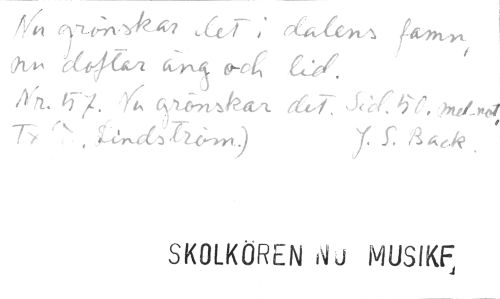 Nu grönskar det i dalens famn,
nu doftar äng och lid.
Nr. 57. Nu grönskar det. Sid. 50. med not,
Tx Lindström.) J. S. Back.
SKOLKÖREN NU MUSIKF,